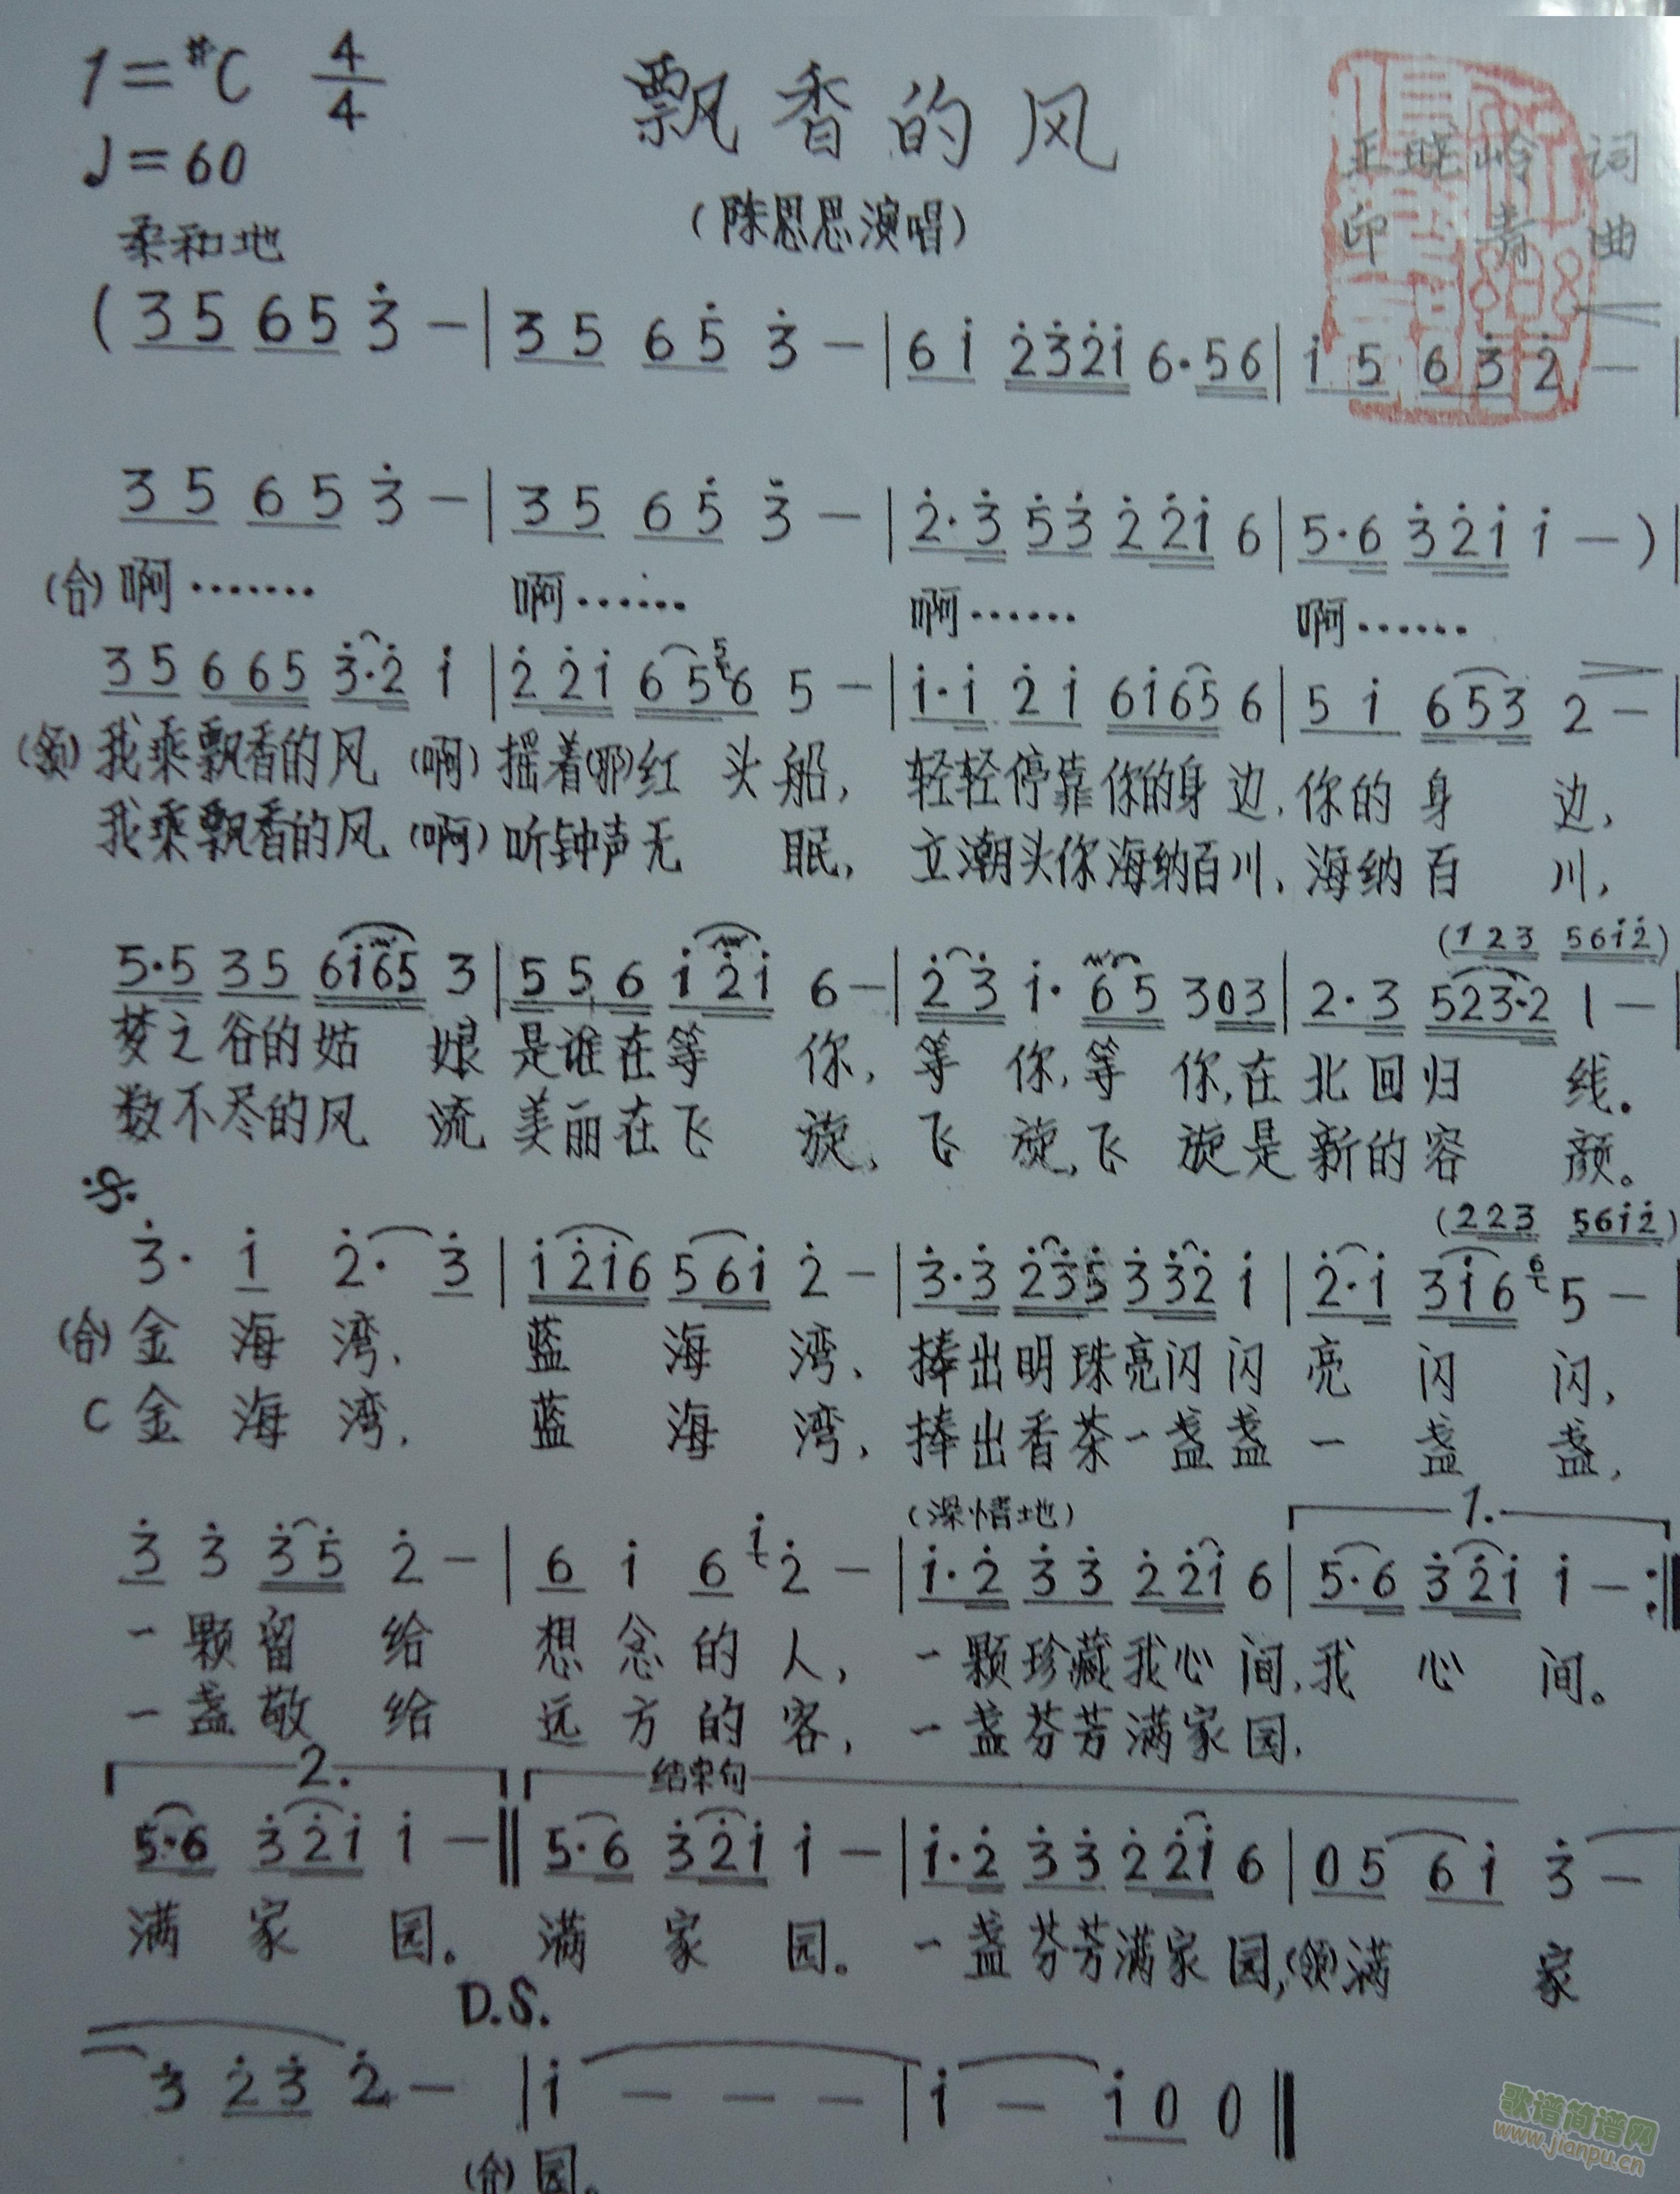 1=#C 4/4 飘香的风
♩=60 王晓岭 词
(陈思思演唱) 印青 曲
柔和地
( 3 5 6 5 3̇ - | 3 5 6 5̇ 3̇ - | 6 1̇ 2̇3̇2̇1̇ 6·56 | 1̇ 5 6 3̇ 2̇ - |
3 5 6 5 3̇ - | 3 5 6 5̇ 3̇ - | 2̇·3̇ 5̇3̇ 2̇ 2̇1̇ 6 | 5·6 3̇2̇1̇ 1̇ - ) |
(合) 啊······· 啊······ 啊······ 啊······
3 5 6 65 3̇·2̇ 1̇ | 2̇ 2̇1̇ 6 5 5 6 5 - | 1̇·1̇ 2̇ 1̇ 61̇65 6 | 5 1̇ 653 2 - |
(领) 我乘飘香的风 (啊) 摇着(那)红 头 船, 轻轻停靠你的身边, 你的 身 边,
我乘飘香的风 (啊) 听钟声无 眠, 立潮头你海纳百川, 海纳百 川,
(1 23 561̇2̇)
5·5 35 61̇65 3 | 5 5 6 1̇ 2̇1̇ 6 - | 2̇ 3̇ 1̇· 65 303 | 2·3 523·2 1 -
梦之谷的姑 娘 是谁在等 你, 等 你, 等 你,在 北回归 线。
数不尽的风 流 美丽在飞 旋, 飞 旋,飞 旋是 新的容 颜。
𝄋 (223 561̇2̇)
3̇· 1̇ 2̇· 3̇ | 1̇2̇1̇6 561̇ 2̇ - | 3̇·3̇ 2̇3̇5̇ 3̇3̇2̇ 1̇ | 2̇·1̇ 31̇6 6 5 -
(合) 金 海 湾, 蓝 海 湾, 捧出明珠亮闪闪 亮 闪 闪,
C 金 海 湾, 蓝 海 湾, 捧出香茶一盏盏 一 盏 盏,
(深情地) 1.
3̇ 3̇ 3̇5̇ 2̇ - | 6 1̇ 6 1̇ 2̇ - | 1̇·2̇ 3̇3̇ 2̇2̇1̇ 6 | 5·6 3̇2̇1̇ 1̇ - :‖
一 颗留 给 想 念 的 人, 一颗珍藏我心 间,我 心 间。
一 盏敬 给 远 方 的 客, 一盏芬芳满家园,
2. 结束句
5·6 3̇2̇1̇ 1̇ - ‖ 5·6 3̇2̇1̇ 1̇ - | 1̇·2̇ 3̇3̇ 2̇2̇1̇ 6 | 05 61̇ 3̇ -
满 家 园。 满 家 园。 一盏芬芳满家园,(领)满 家
D.S.
3̇ 2̇3̇ 2̇ - | 1̇ - - - | 1̇ - 1̇0 0 ‖
(合) 园。
歌谱简谱网
www.jianpu.cn